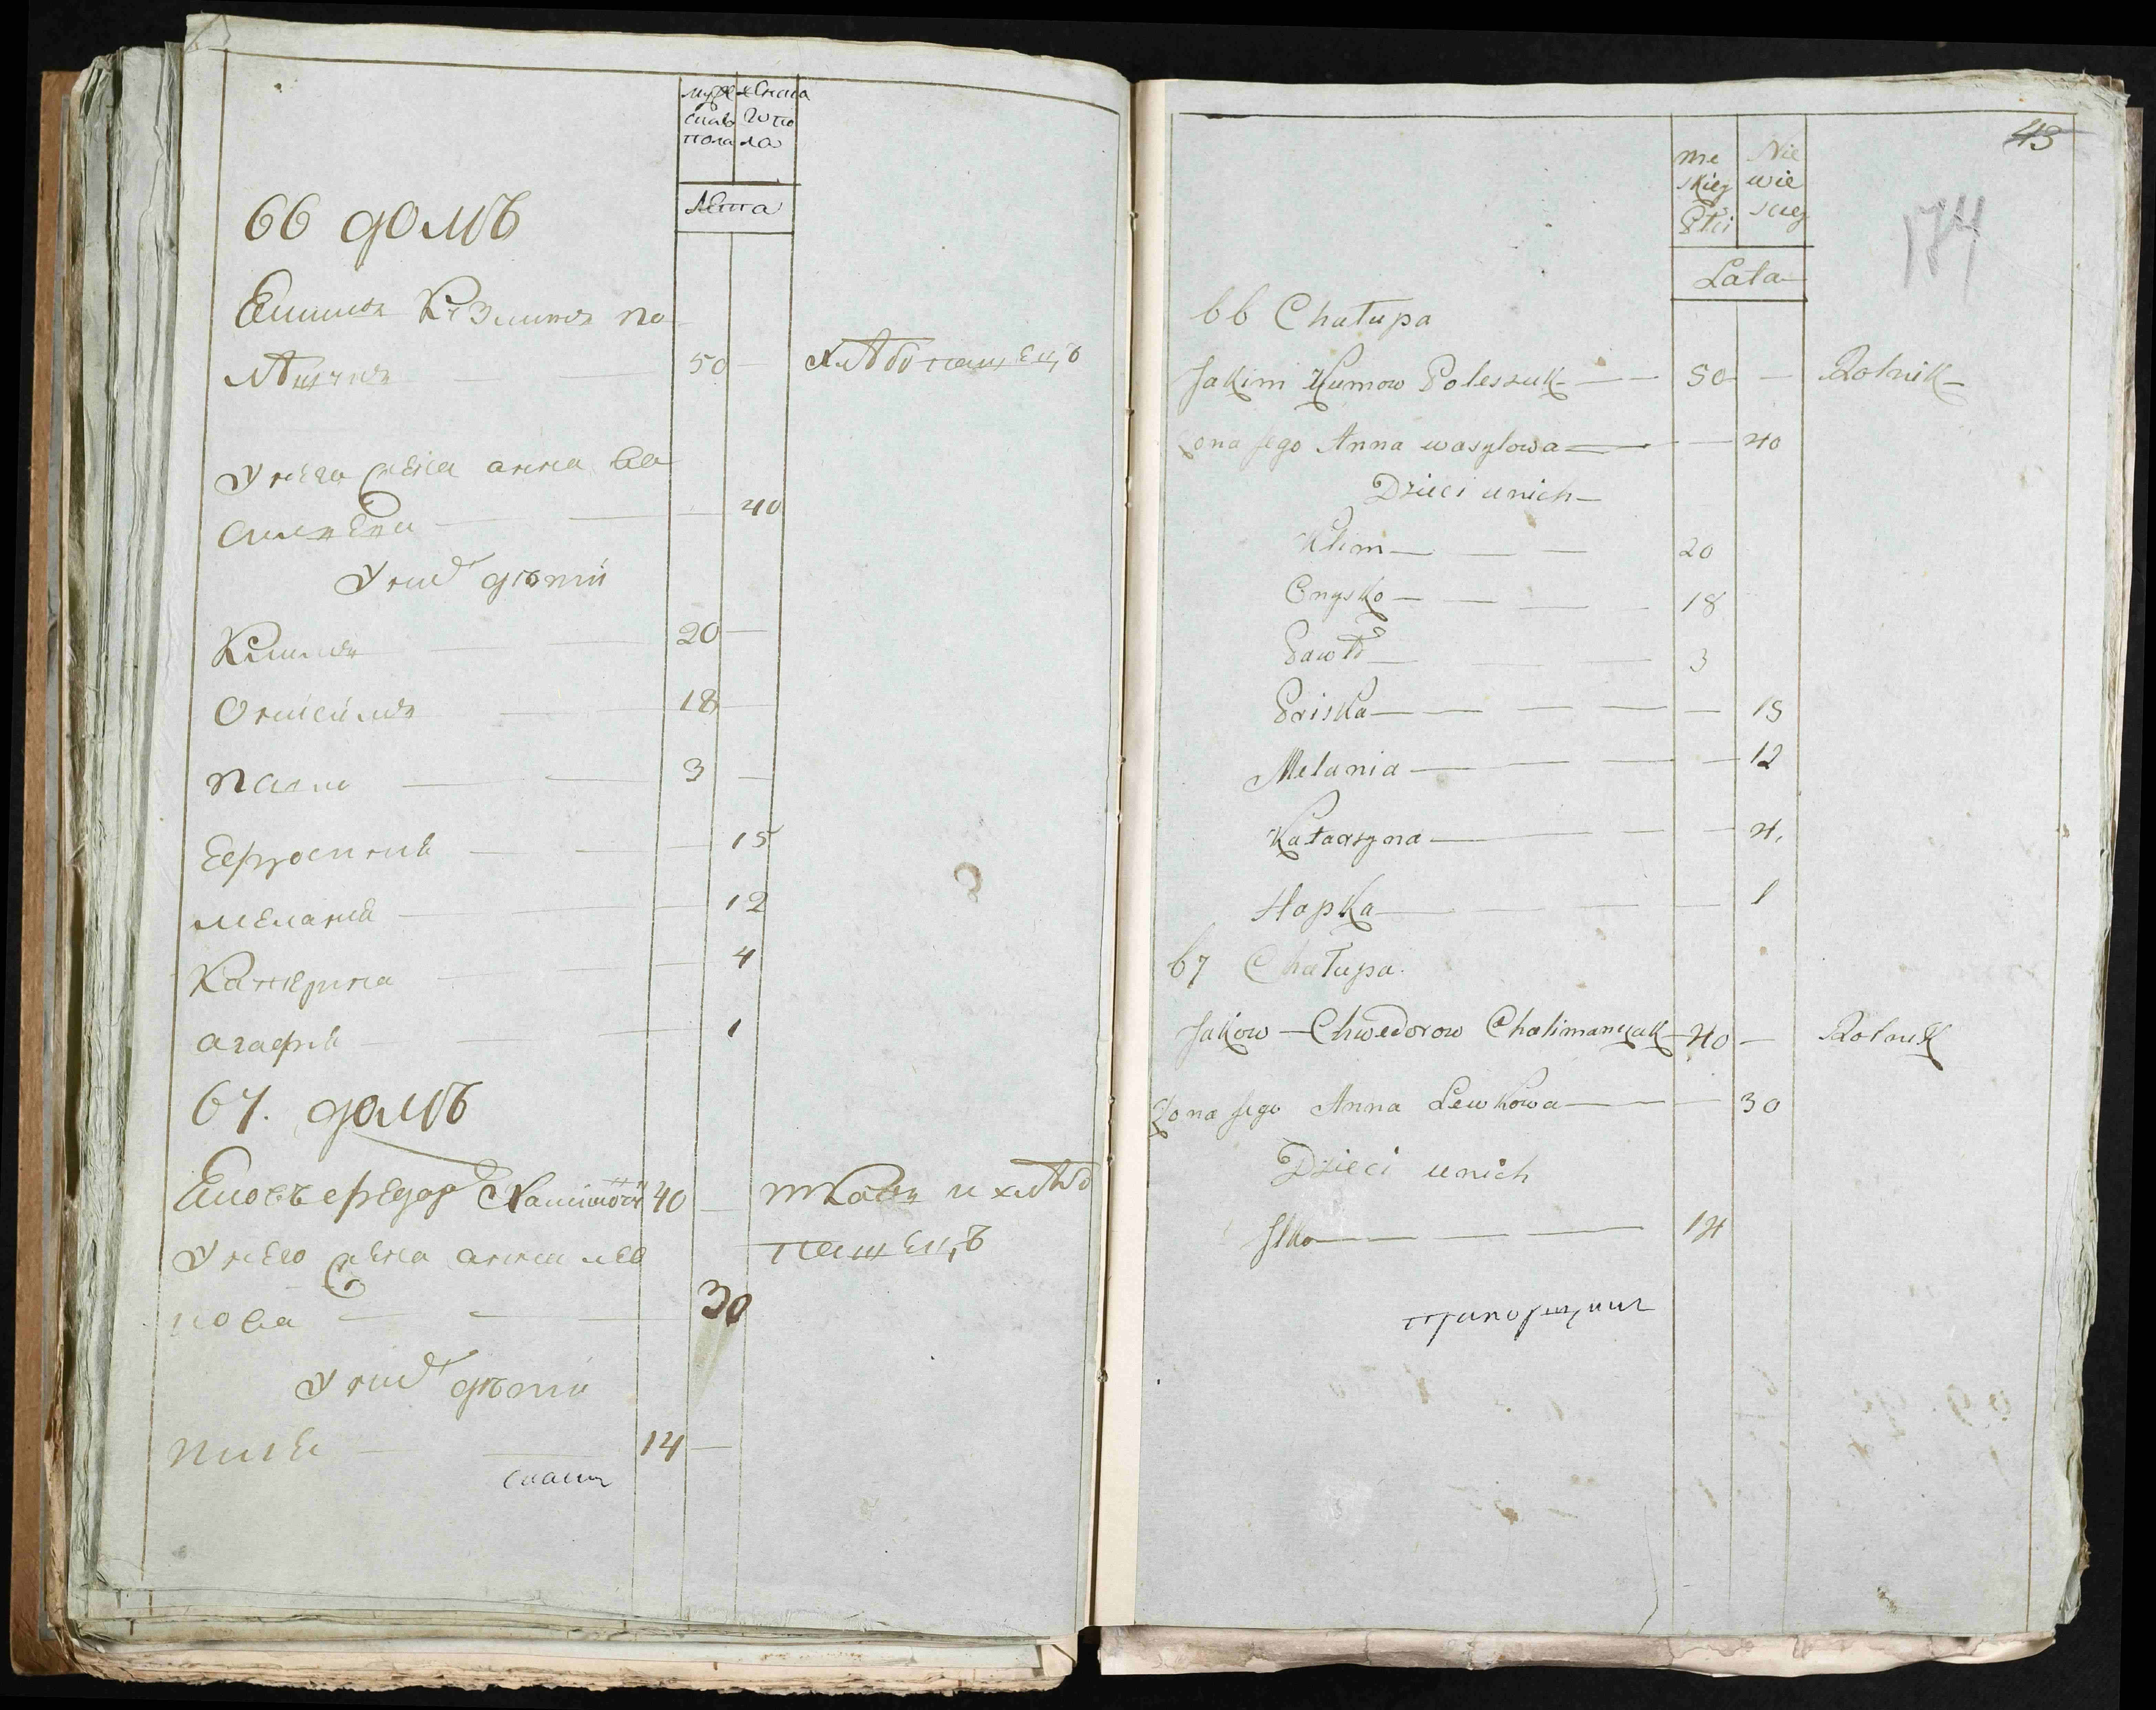 муже женска
скаго го по
пола ла
Лета
66 домъ
Еким Кузмин по
лѣщук 50 — хлѣбопашецъ
У него жена анна ва
силева — 40
У них дѣти
Клим 20 —
Онисим 18 —
Павло 3 —
Ефросиния 15
меланя 12
Катерина 4
агафия 1
67. домъ
Яковъ федор 40 — ткач и хлѣбо
У него жена анна лев пашецъ
кова — 30
У них дѣти
илко 14 —
43
174
Mę Nie
skiej wie
Płci sciej
Lata
66 Chałupa
Jakim Kumow Poleszuk — 50 — Rolnik
Zona Jego Anna wasylowa — 40
Dzieci unich
Klim — 20
Onysko — 18
Pawło — 3
Priska — 15
Melania — 12
Katarzyna — 4.
Hapka — 1
67 Chałupa.
Jakow Chwedorow Chalimanczuk 40 — Rolnik
Zona Jego Anna Lewkowa — 30
Dzieci unich
Ilko — 14